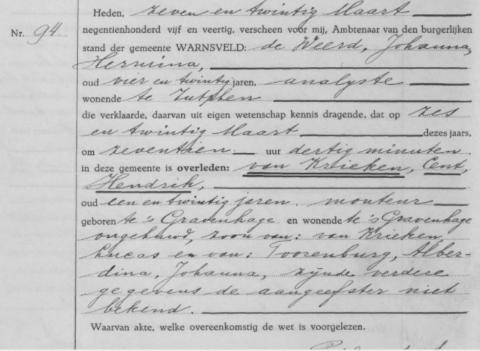 Heden, zeven en twintig Maart
negentienhonderd vijf en veertig, verscheen voor mij, Ambtenaar van den burgerlijken
Nr. 94.
stand der gemeente WARNSVELD: de Weerd, Johanna
Hermina,
oud vier en twintig jaren, analyste
wonende te Zutphen
die verklaarde, daarvan uit eigen wetenschap kennis dragende, dat op zes
en twintig Maart dezes jaars,
om zeventien uur dertig minuten
in deze gemeente is overleden: van Krieken, Cent,
Hendrik,
oud een en twintig jaren, monteur
geboren te 's Gravenhage en wonende te 's Gravenhage
ongehuwd, zoon van: van Krieken,
Lucas en van: Toorenburg, Alber-
dina, Johanna, zijnde verdere
gegevens de aangeefster niet
bekend.
Waarvan akte, welke overeenkomstig de wet is voorgelezen.